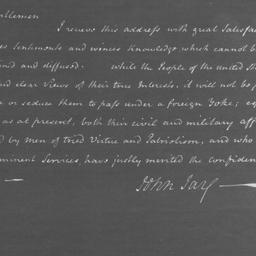 ntlemen
I receive this address with great Satisfac
es Sentiments and evinces Knowledge which cannot b
ined and diffused. While the People of the united St
and clear Views of their true Interests, it will not be p
or seduce them to pass under a foreign Yoke;
as at present, both their civil and military aff
d by men of tried Virtue and Patriotism, and who
minent Services, have justly merited the confiden
John Jay